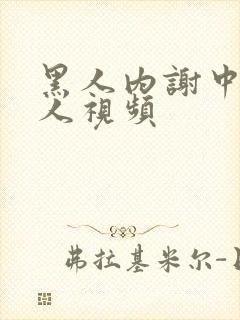 黑人内謝中
人視頻
弗拉基米尔-